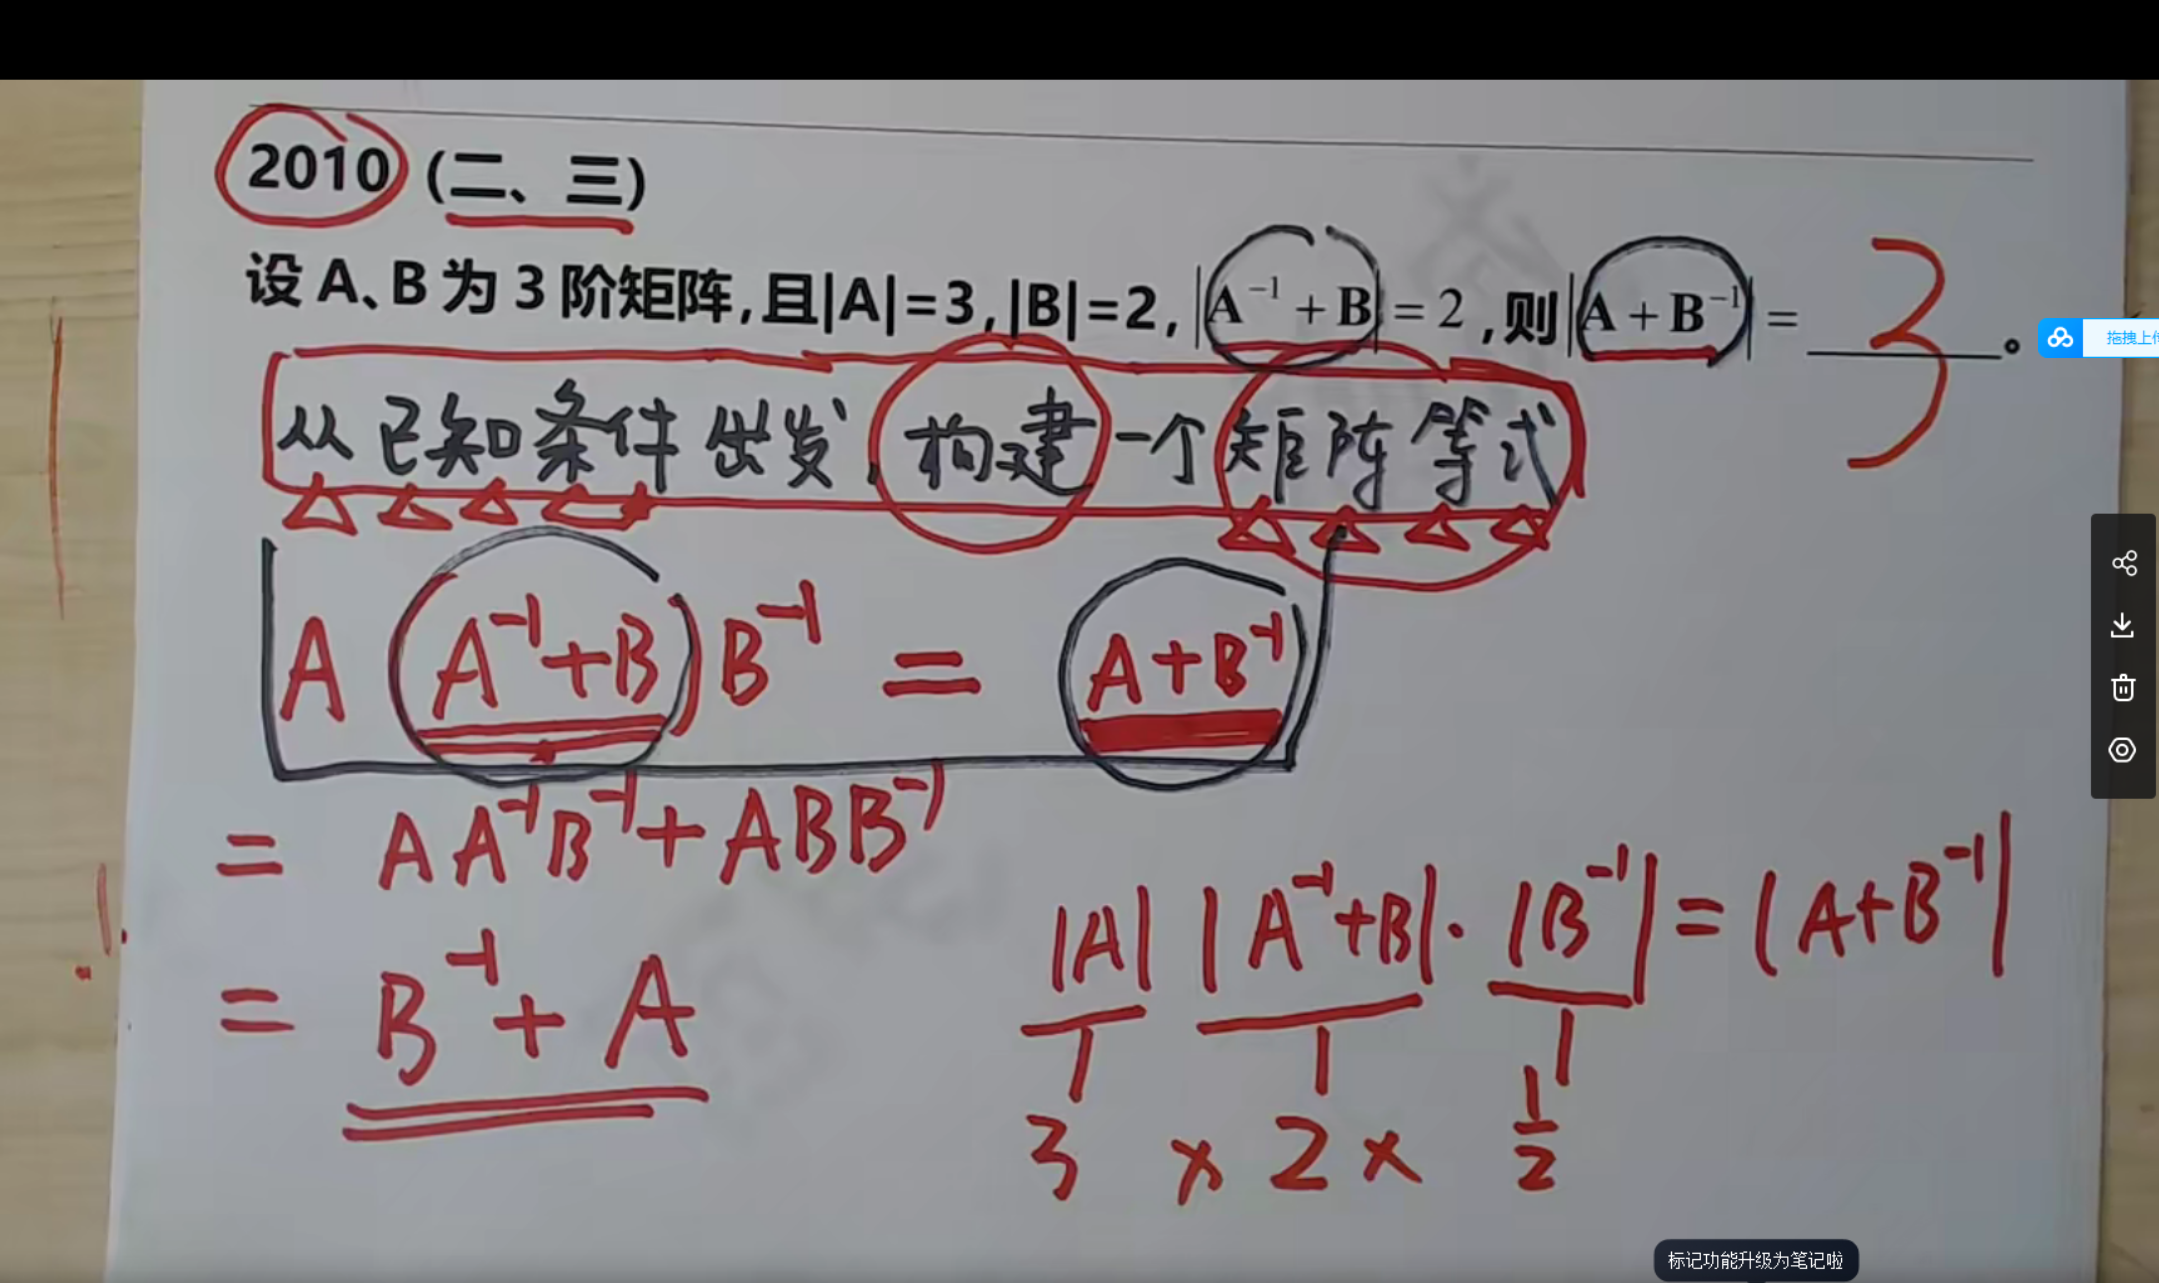 2010 (二、三)
设 A、B 为 3 阶矩阵,且|A|=3,|B|=2, |A⁻¹+B|=2,则|A+B⁻¹|= 3 。
拖拽上传
从已知条件出发,构建一个矩阵等式
A(A⁻¹+B)B⁻¹ = A+B⁻¹
= AA⁻¹B⁻¹+ABB⁻¹
= B⁻¹+A
|A| |A⁻¹+B|·|B⁻¹|=|A+B⁻¹|
3 × 2 × 1/2
标记功能升级为笔记啦